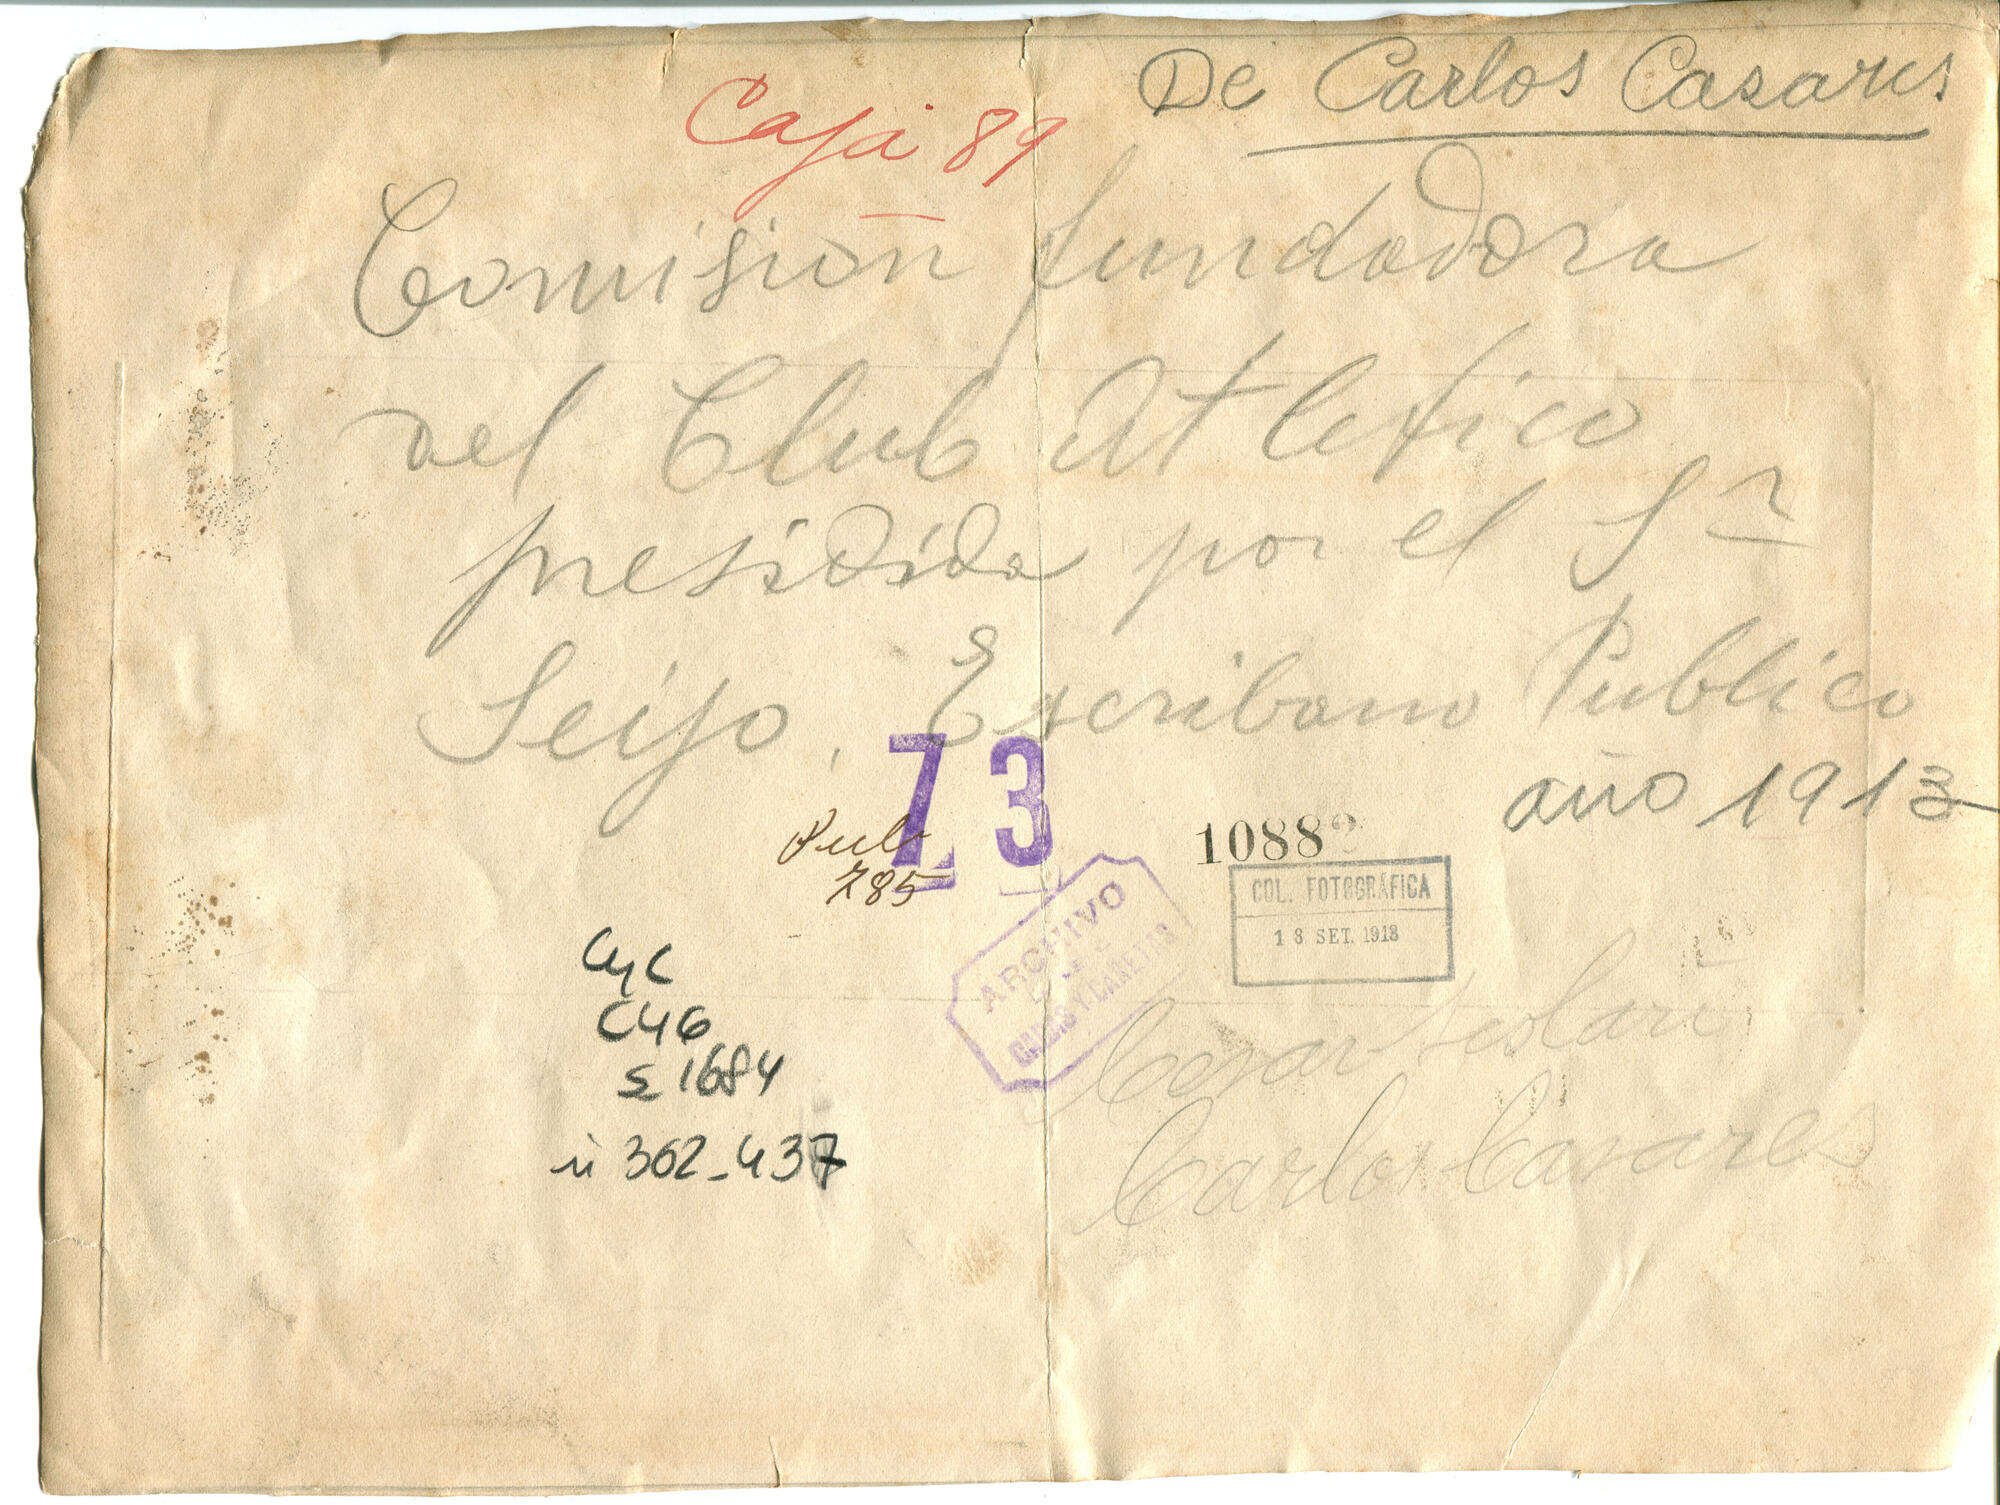 De Carlos Casares
Caja 89
Comisión fundadora
del Club Atletico
presidida por el Sr
Seijo, Escribano Publico
año 1913
73
Pub
785
10882
COL. FOTOGRÁFICA
13 SET. 1913
ARCHIVO
DE
CARAS Y CARETAS
CyC
C46
S 1684
n 362-437
Cesar
Carlos Casares